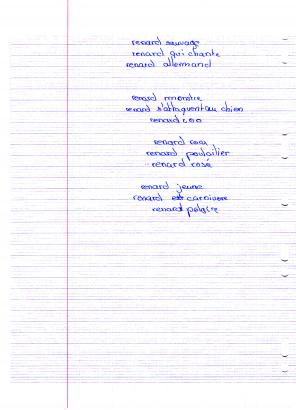 renard sauvage
renard qui chante
renard allemand
renard montre
renard s'attaquent au chien
renard zoo
renard
renard poulailler
renard rose
renard jeune
renard est carnivore
renard polaire